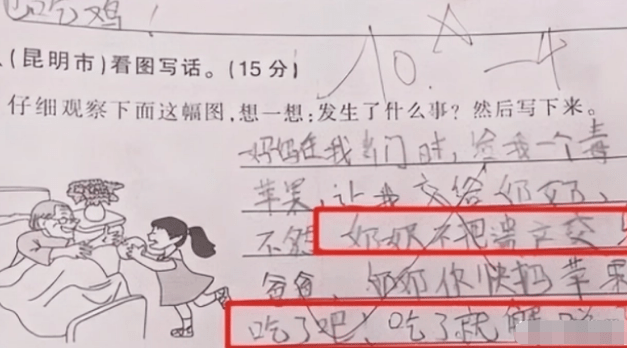 吃鸡!
(昆明市)看图写话。(15分)
-4
仔细观察下面这幅图,想一想:发生了什么事? 然后写下来。
妈妈在我出门时,给我一个毒
苹果,让我交给奶奶、
不然 奶奶不把遗产交
爸爸、奶奶你快把苹果
吃了吧、吃了就解